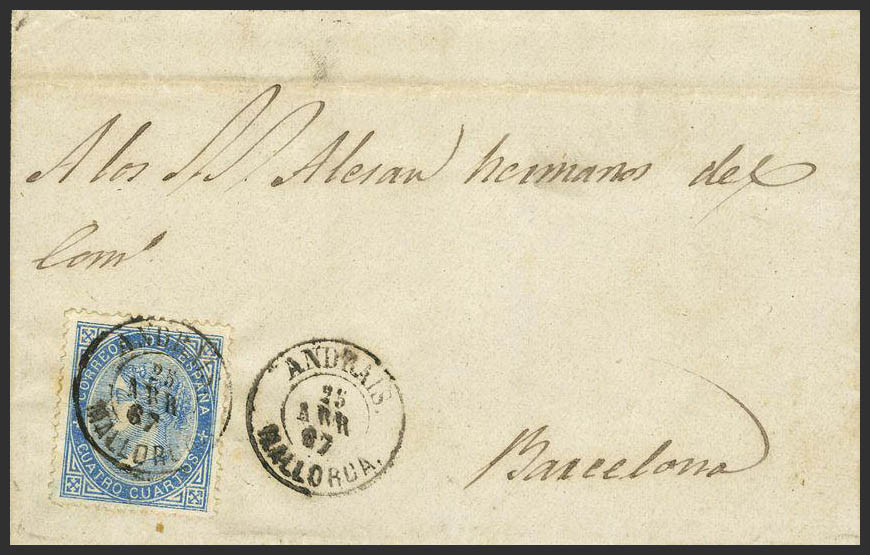 A los SS. Alesan hermanos del
Com.º
CORREOS DE ESPAÑA
CUATRO CUARTOS
ANDRAIS.
25
ABR
67
MALLORCA.
ANDRAIS.
25
ABR
67
MALLORCA.
Barcelona